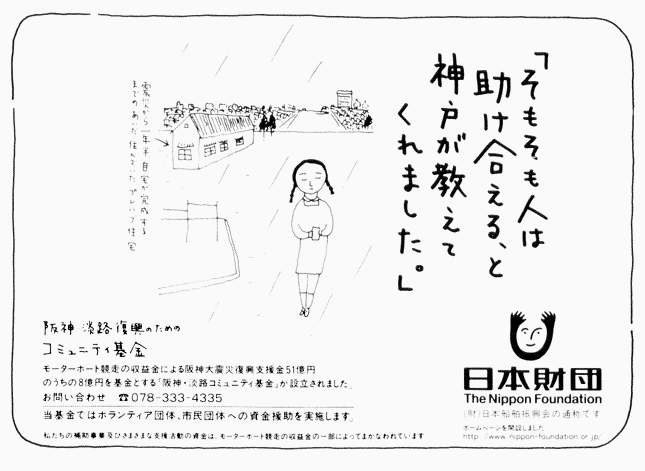 「そもそも人は
助け合える、と
神戸が教えて
くれました。」
震災から一年半自宅が完成する
までのあいだ住んでいたプレハブ住宅
阪神 淡路復興のための
コミュニティ基金
モーターボート競走の収益金による阪神大震災復興支援金51億円
のうちの8億円を基金とする「阪神・淡路コミュニティ基金」が設立されました。
お問い合わせ ☎078-333-4335
当基金ではボランティア団体、市民団体への資金援助を実施します。
私たちの補助事業及びさまざまな支援活動の資金は、モーターボート競走の収益金の一部によってまかなわれています
日本財団
The Nippon Foundation
(財)日本船舶振興会の通称です
ホームページを開設しました
http://www.nippon-foundation.or.jp/